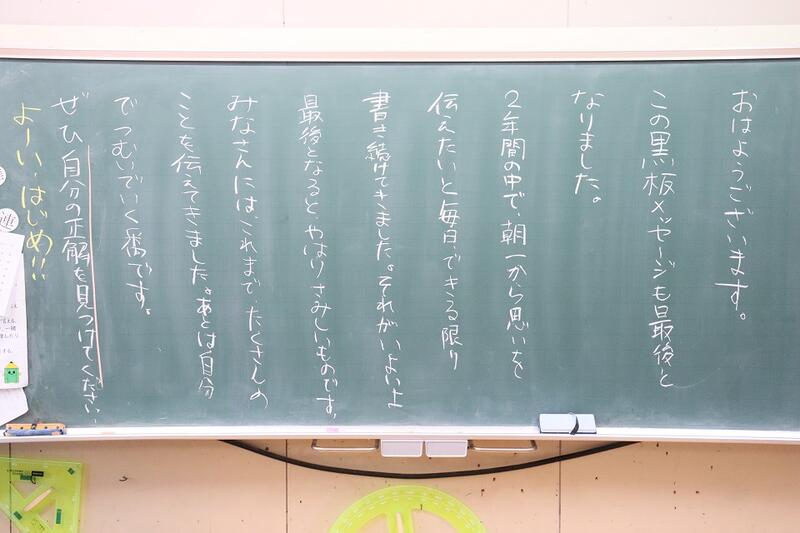 おはようございます。
この黒板メッセージも最後と
なりました。
2年間の中で、朝一から思いを
伝えたいと毎日、できる限り
書き続けてきました。それがいよいよ
最後となると、やはりさみしいものです。
みなさんには、これまで、たくさんの
ことを伝えてきました。あとは自分
でつむいでいく番です。
ぜひ自分の正解を見つけてください。
よーい、はじめ!!
連